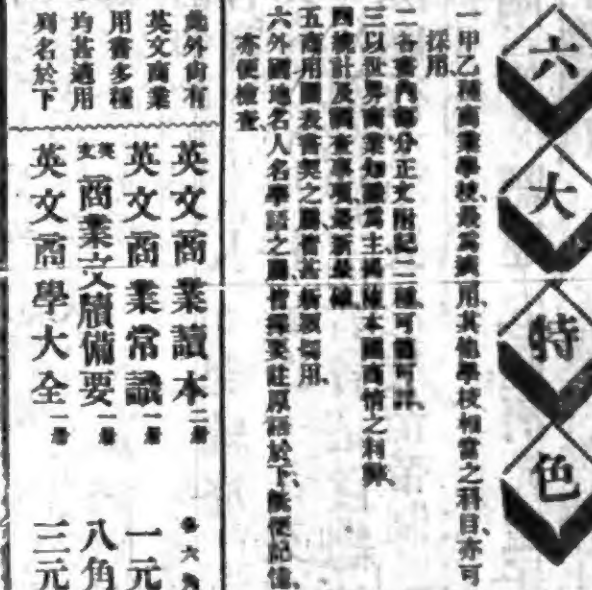 六大特色
一甲乙種商業學校、最爲適用、其他學校相當之科目、亦可
採用、
二各書內容分正文附記二種、可簡可詳、
三以世界商業知識爲主、
四統計及調查事項、最新最確、
五商用圖表書契之屬、皆切用、
六外國地名人名學語之屬、皆擇要註原語於下、既便記憶、
亦便檢查、
此外尚有
英文商業
用書多種
均甚適用
列名於下
英文商業讀本 二册
英文商業常識 一册 一元
英文商業文牘備要 一册 八角
英文商學大全 一册 三元